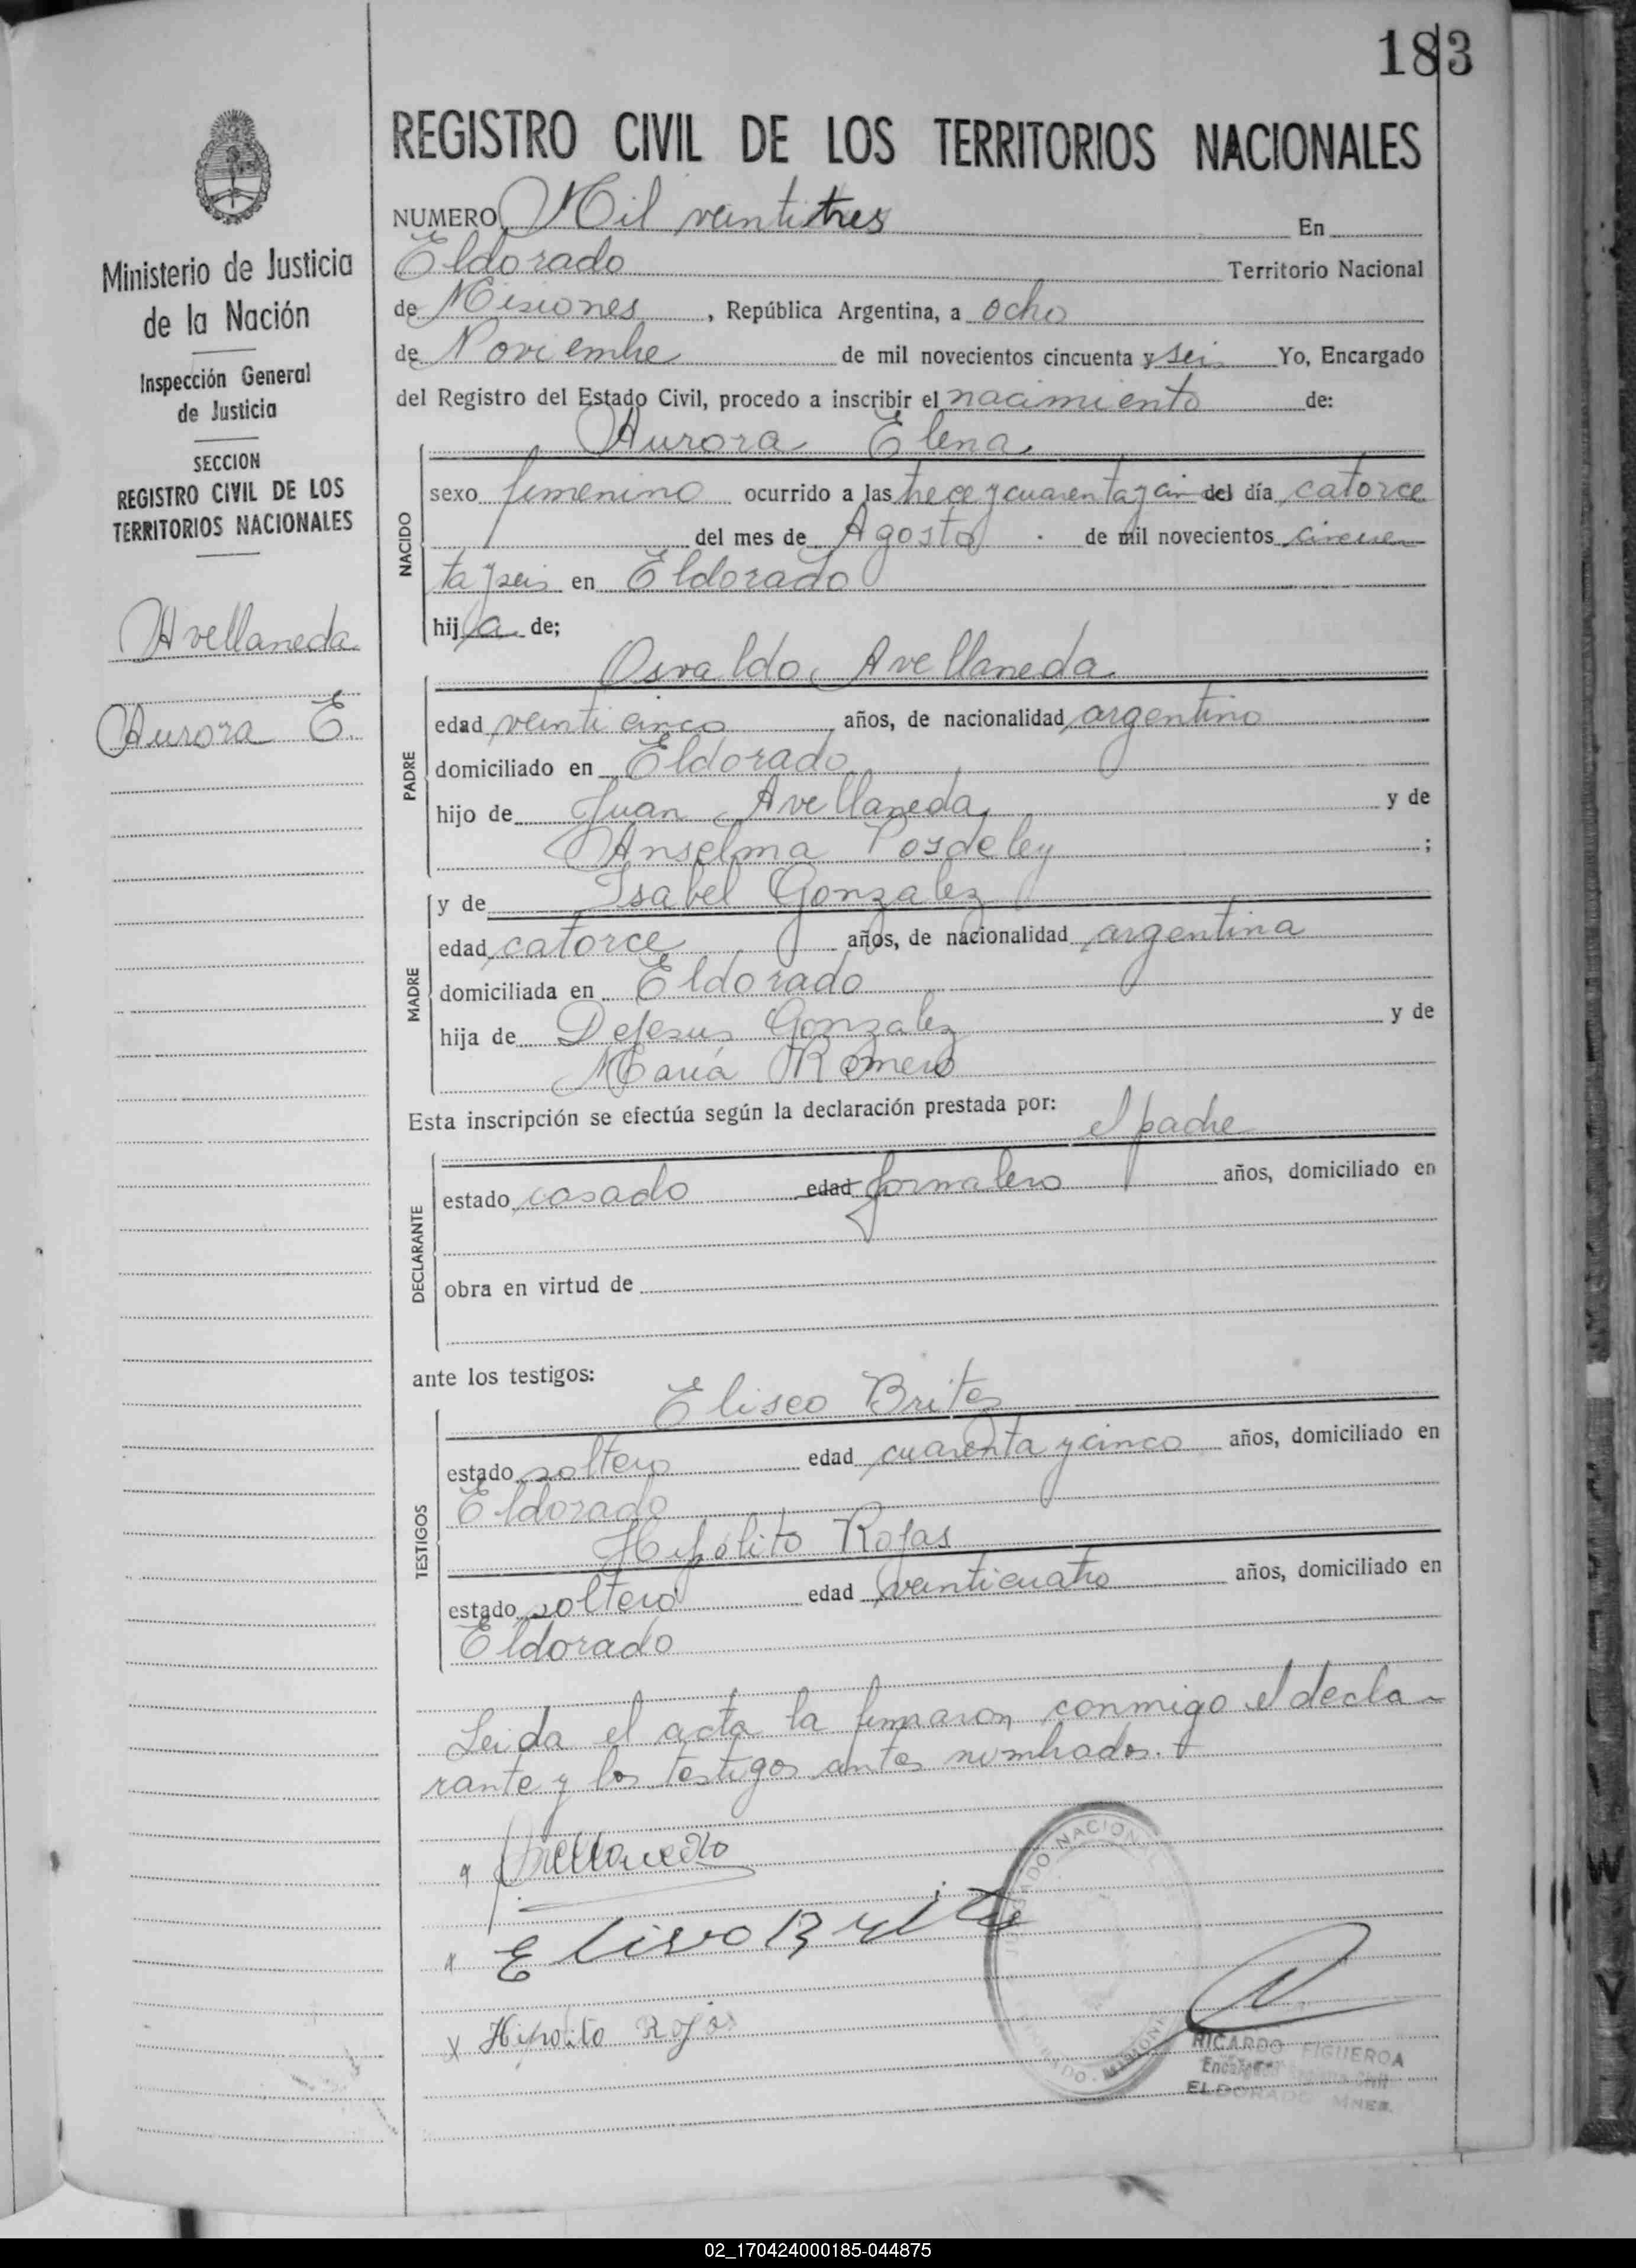 183
REGISTRO CIVIL DE LOS TERRITORIOS NACIONALES
Ministerio de Justicia
de la Nación
Inspección General
de Justicia
SECCION
REGISTRO CIVIL DE LOS
TERRITORIOS NACIONALES
Avellaneda
Aurora E.
NUMERO Mil veintitres En
Eldorado Territorio Nacional
de Misiones, República Argentina, a ocho
de Noviembre de mil novecientos cincuenta y seis Yo, Encargado
del Registro del Estado Civil, procedo a inscribir el nacimiento de:
Aurora Elena
NACIDO
sexo femenino ocurrido a las trece y cuarenta y cin del día catorce
del mes de Agosto de mil novecientos cincuen
ta y seis en Eldorado
hija de;
Osvaldo Avellaneda
PADRE
edad veinticinco años, de nacionalidad argentino
domiciliado en Eldorado
hijo de Juan Avellaneda y de
Anselma Posdeley ;
y de Isabel Gonzalez
MADRE
edad catorce años, de nacionalidad argentina
domiciliada en Eldorado
hija de Dejesus Gonzalez y de
María Romero
Esta inscripción se efectúa según la declaración prestada por: el padre
DECLARANTE
estado casado edad jornalero años, domiciliado en
obra en virtud de
ante los testigos:
Eliseo Britez
TESTIGOS
estado soltero edad cuarenta y cinco años, domiciliado en
Eldorado
Hipólito Rojas
estado soltero edad veinticuatro años, domiciliado en
Eldorado
Leida el acta la firmaron conmigo el decla-
rante y los testigos antes nombrados.
Avellaneda
Eliseo Britez
x Hipolito Rojas
JUZGADO NACIONAL
ELDORADO - MISIONES
RICARDO FIGUEROA
Encargado Registro Civil
ELDORADO MNES.
02_170424000185-044875